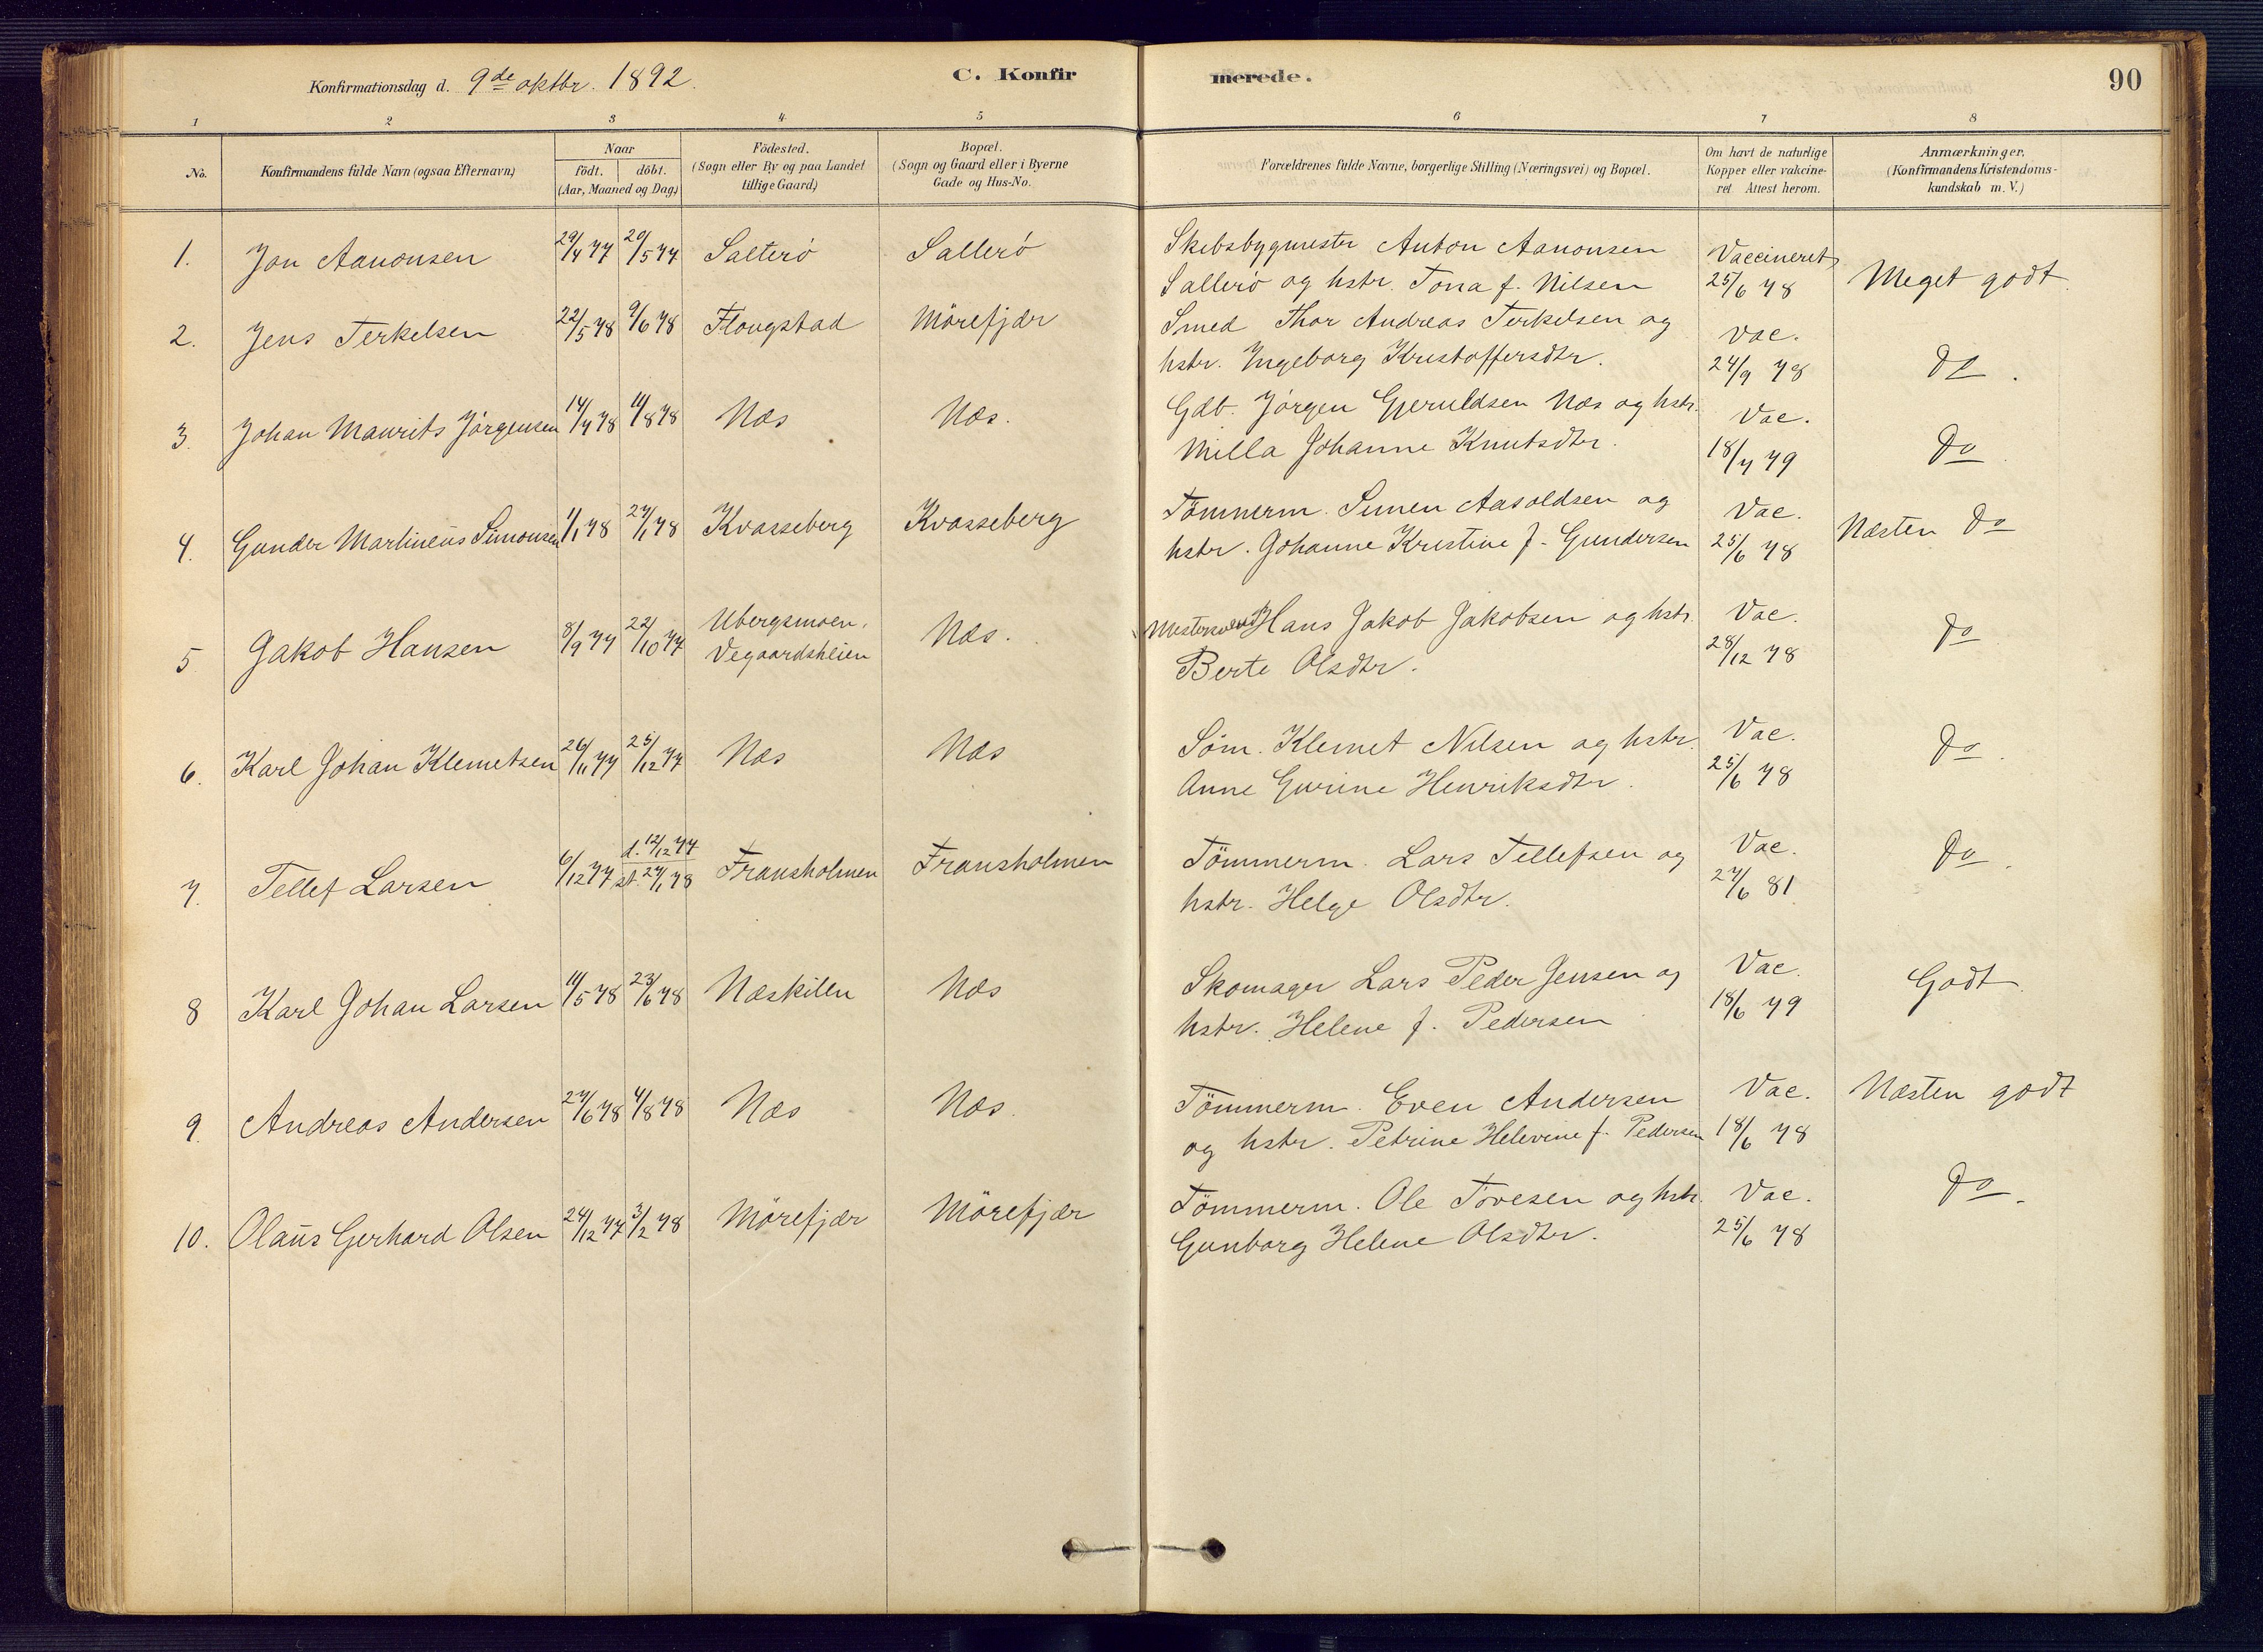 Konfirmationsdag d. 9de oktbr. 1892.
C. Konfirmerede.
90
1 2 3 4 5 6 7 8
No.
Konfirmandens fulde Navn (ogsaa Efternavn)
Naar
födt. döbt.
(Aar, Maaned og Dag)
Födested.
(Sogn eller By og paa Landet
tillige Gaard)
Bopæl.
(Sogn og Gaard eller i Byerne
Gade og Hus-No.
Forældrenes fulde Navne, borgerlige Stilling (Næringsvei) og Bopæl.
Om havt de naturlige
Kopper eller vakcine-
ret Attest herom.
Anmærkninger.
(Konfirmandens Kristendoms-
kundskab m. V.)
1. Jon Aanonsen 29/4 77 20/5 77 Salterö Sallerö
Skibsbygmester Anton Aanonsen
Sallerö og hstr. Tona f. Nilsen
Vaccineret
25/6 78
Meget godt.
2. Jens Terkelsen 22/5 78 9/6 78 Flougstad Mörefjær
Smed Thor Andreas Terkelsen og
hstr. Ingeborg Kristoffersdtr.
Vac.
24/9 78
Do.
3. Johan Maurits Jörgensen 14/7 78 11/8 78 Næs Næs.
Gdb. Jörgen Gjeruldsen Næs og hstr.
Milla Johanne Knutsdtr.
Vac.
18/7 79
Do
4. Gunder Martineus Simonsen 1/1 78 27/1 78 Kvasseberg Kvasseberg
Tömmerm. Simen Aasoldsen og
hstr. Johanne Kristine f. Gundersen
Vac.
25/6 78
Næsten Do
5 Jakob Hansen 8/9 77 22/10 77 Ubergsmoen,
Vegaardsheien
Næs.
Hans Jakob Jakobsen og hstr.
Berte Olsdtr.
Vac.
28/12 78
Do
6. Karl Johan Klemetsen 26/11 77 25/12 77 Næs Næs
Söm. Klemet Nilsen og hstr.
Anne Gurine Henriksdtr.
Vac.
25/6 78
Do.
7. Tellef Larsen 6/12 77 d. 12/12 77
st. 27/1 78
Fransholmen Fransholmen
Tömmerm. Lars Tellefsen og
hstr. Helge Olsdtr.
Vac.
27/6 81
Do.
8 Karl Johan Larsen 11/5 78 23/6 78 Næskilen Næs
Skomager Lars Peder Jensen og
hstr. Helene f. Pedersen
Vac.
18/6 79
Godt.
9. Andreas Andersen 27/6 78 4/8 78 Næs Næs.
Tömmerm. Even Andersen
og hstr. Petrine Helevine f. Pedersen
Vac.
18/6 78
Næsten godt
10. Olaus Gerhard Olsen 24/12 77 3/2 78 Mörefjær Mörefjær
Tömmerm. Ole Tovesen og hstr.
Gunborg Helene Olsdtr.
Vac.
25/6 78
Do.